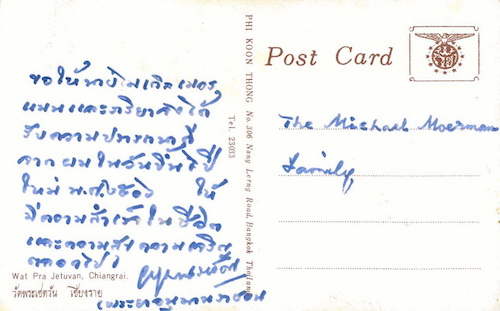 ขอให้นายไมเคิล เมอร์
แมนและภริยาจงได้
รับความปรารถนาดี
จากผมในวันขึ้นปี
ใหม่ ให้
มีความสำเร็จในชีวิต
และความสุขความเจริญ
ตลอดไป
Wat Pra Jetuvan, Chiangrai.
วัดพระเชตวัน เชียงราย
PHI KOON THONG No. 306 Nang Lerng Road, Bangkok Thailand
Tel. 23033
Post Card
The Michael Moerman
Family,